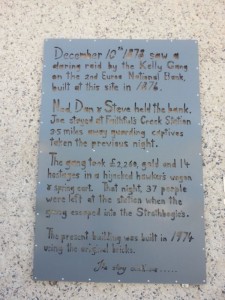 December 10th 1878 saw a
daring raid by the Kelly Gang
on the 2nd Euroa National Bank,
built at this site in 1876.
Ned, Dan & Steve held the bank.
Joe stayed at Faithfull's Creek Station
3.5 miles away guarding captives
taken the previous night.
The gang took £2,260, gold and 14
hostages in a hijacked hawker's wagon
& spring cart. That night, 37 people
were left at the station when the
gang escaped into the Strathbogies.
The present building was built in 1974
using the original bricks.
The story continues.....